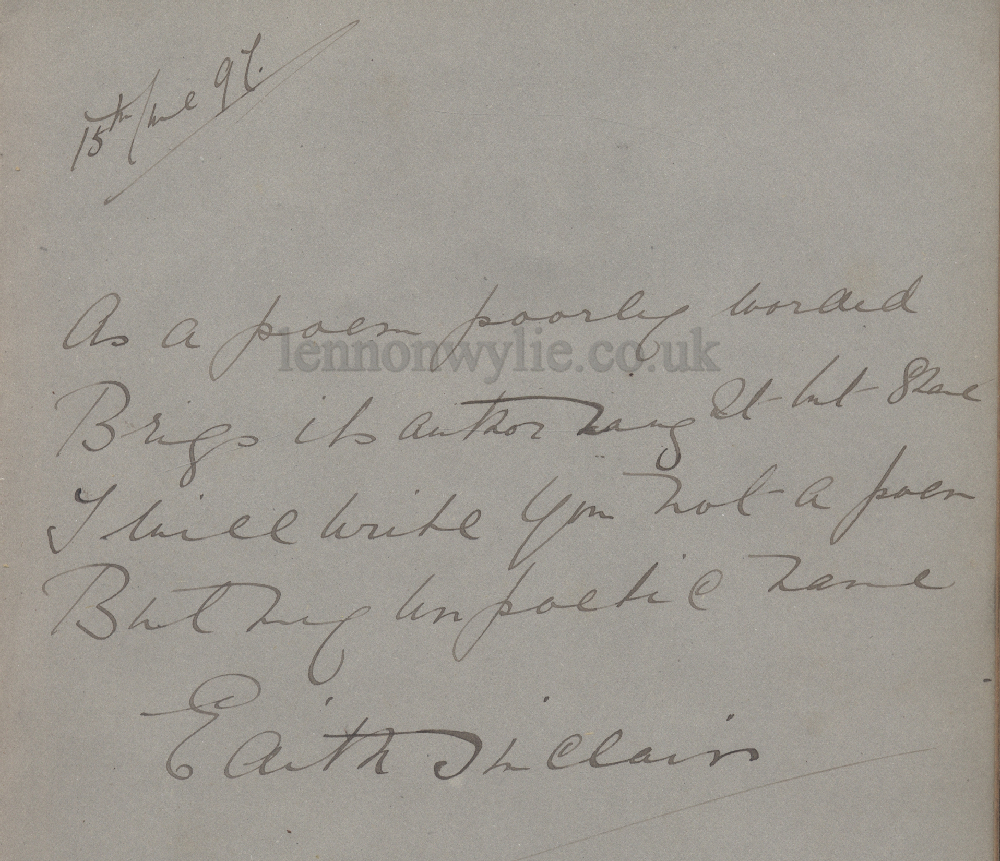 15th June 97.
As a poem poorly worded
lennonwylie.co.uk
Brigs its author naught but Shame
I will write you not a poem
But my unpoetic name
Edith Sinclair